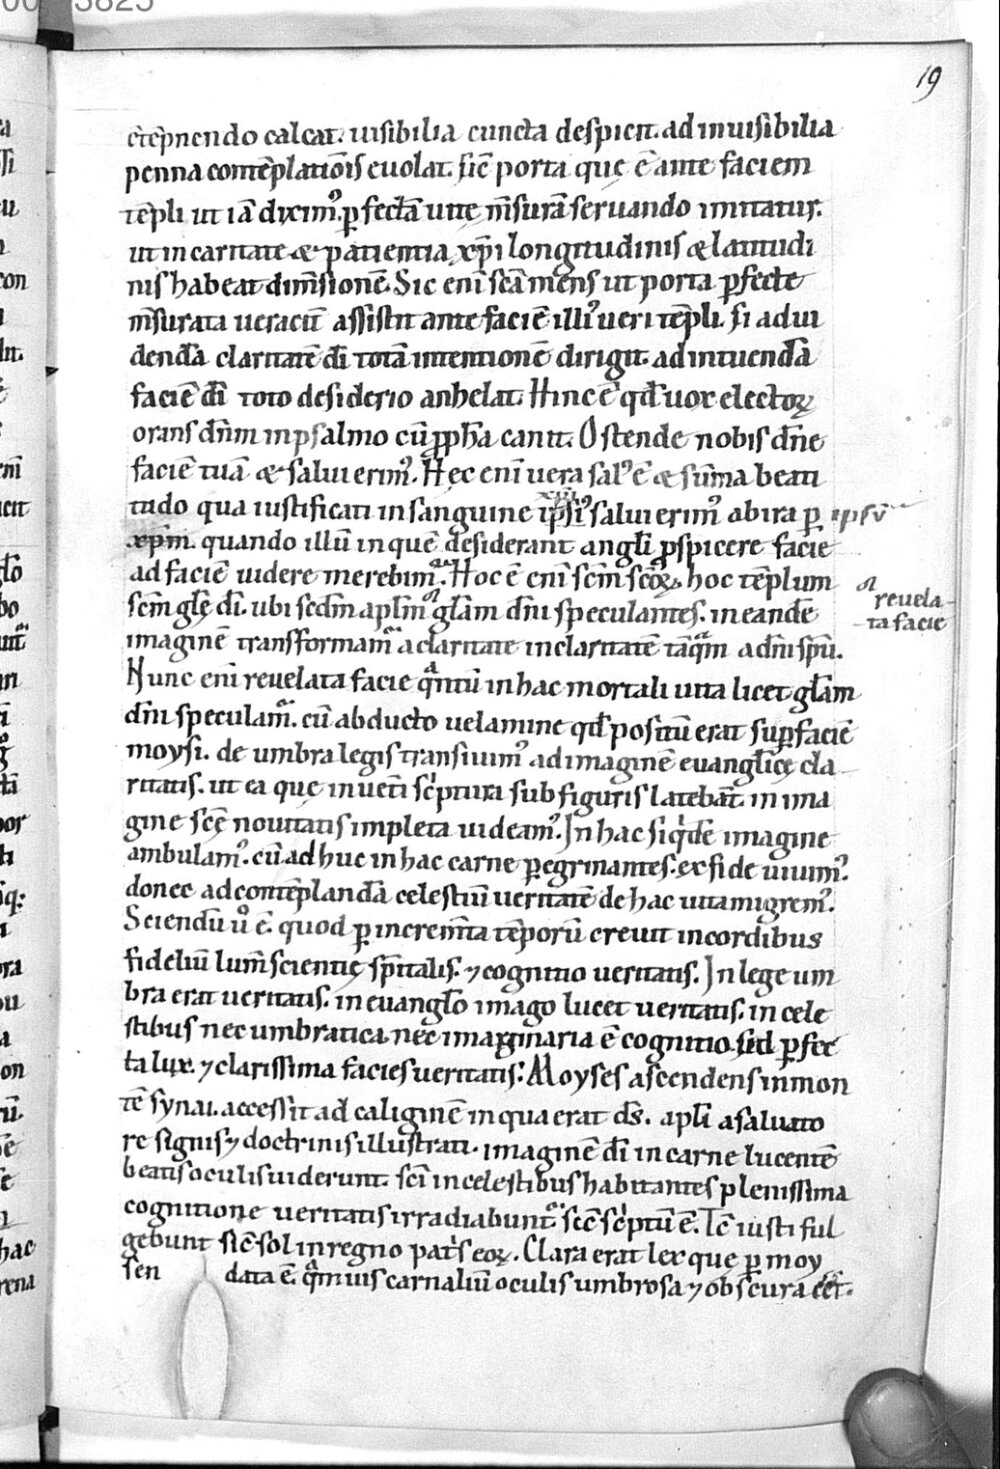 19
cēt̄ep̄nendo calcat. uisibilia cuncta despicit. ad inuisibilia
penna contēplatiōis euolat. sic̄ porta quę ē ante faciem
tēpli ut iā diximꝰ. ꝑfectā uitę m̄surā seruando imitatur.
ut in caritate & patientia xp̄i longitudinis & latitudi
nis habeat dim̄sionē. Sic eni scā mens ut porta ꝑfecte
m̄surata ueracit̄ assistit ante faciē illiꝰ ueri tēpli. si ad ui
dendā claritatē dī totā intentionē dirigit. ad intuendā
faciē dī toto desiderio anhelat. Hinc ē qđ uox electoꝝ
orans dn̄m in psalmo cū ꝓph̄a canit. Ostende nobis dn̄e
faciē tuā & salui erimꝰ. Hęc eni uera salꝰ ē & sūma beati
tudo qua iustificati in sanguine ip̄siꝰ salui erimꝰ ab ira ꝑ ipsū
xp̄m. quando illū in quē desiderant angli ꝓspicere facie
ad faciē uidere merebimur. Hoc ē eni scm̄ scōꝝ. hoc tēplum
scm̄ glę dī. ubi scdm̄ aplm̄ glam dn̄i speculantes. in eandē
reuela
ta facie
imaginē transformamur a claritate in claritatē tāqm̄ a dn̄i spū.
Nunc eni reuelata facie qntū in hac mortali uita licet glam
dn̄i speculamur. cū abducto uelamine qđ positū erat suꝑ faciē
moysi. de umbra legis transiuimꝰ ad imaginē euanglicę cla
ritatis. ut ea quę in uet̄i sc̄ptura sub figuris latebāt. in ima
gine scę nouitatis impleta uideamꝰ. In hac siqdē imagine
ambulamꝰ. cū adhuc in hac carne ꝑegrinantes. ex fide uiuimꝰ.
donec ad contēplandā celestiū ueritatē de hac uita migremꝰ.
Sciendū u° ē. quod ꝑ increm̄ta tēporū creuit in cordibus
fideliū lum̄ scientię sp̄italis. ⁊ cognitio ueritatis. In lege um
bra erat ueritatis. in euanglo imago lucet ueritatis. in cele
stibus nec umbratica nec imaginaria ē cognitio. sed ꝑfec
ta lux. ⁊ clarissima facies ueritatis. Moyses ascendens in mon
tē synai. accessit ad caliginē in qua erat ds̄. apli a saluato
re signis ⁊ doctrinis illustrati. imaginē dī in carne lucentē
beatis oculis uiderunt. scī in celestibus habitantes plenissima
cognitione ueritatis irradiabuntur. sic̄ sc̄ptū ē. Tc̄ iusti ful
gebunt sic̄ sol in regno patis eoꝝ. Clara erat lex que ꝑ moy
sen data ē. qmuis carnaliū oculis umbrosa ⁊ obscura eēt.